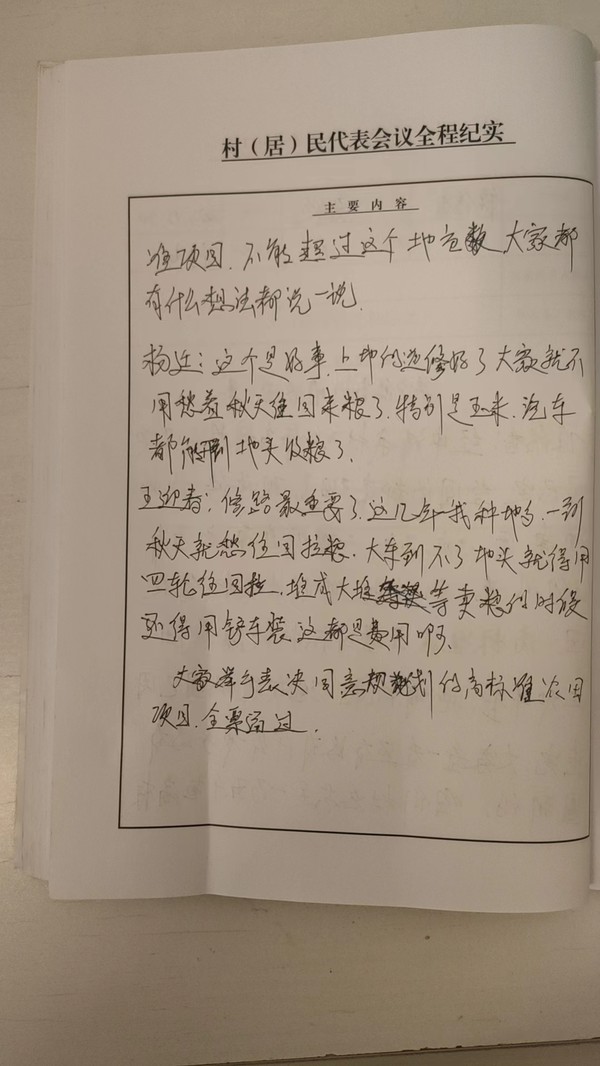 村（居）民代表会议全程纪实
主要内容
准项目.不能超过这个地 数 大家都
有什么想法都说一说.
杨 ：这个是好事.上地的道修好了大家就不
用愁着秋天往回来粮了.特别是玉米.汽车
都能 到地头收粮了.
王迎春：修路最重要了.这几年我种地 .一到
秋天就愁往回拉粮.大车到不了地头就得用
四轮往回拉.堆成大堆 等卖粮的时候
还得用铲车装.这都是费用啊.
大家举手表决同意规划的高标准农田
项目.全票通过.